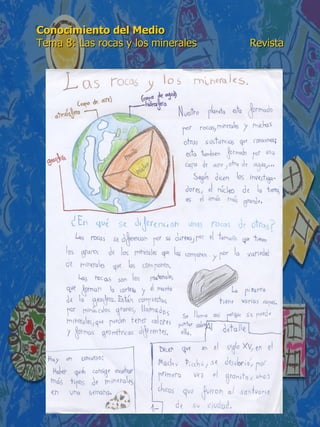 Conocimiento del Medio
Tema 8: Las rocas y los minerales Revista
Las rocas y los minerales.
(capa de aire)
atmósfera
(capa de agua)
hidrosfera
geosfera
manto
Nuestro planeta esta formado
por rocas, minerales y muchas
otras sustancias que conocemos
esta tambien formado por una
capa de aire, otra de agua,...
Según dicen los investiga-
dores, el núcleo de la tierra
es el imán más grande.
¿En qué se diferencian unas rocas de otras?
Las rocas se diferencian por su dureza, por el tamaño que tienen
los granos de los minerales que las componen y por la variedad
de minerales que las componen.
Las rocas son los materiales
que forman la corteza y el manto
de la geosfera. Están compuestas
por minúsculos granos, llamados
minerales, que pueden tener colores
y formas geométricas diferentes.
La pizarra
tiene varias capas.
Se llama así porque se puede
pintar sobre
ella.
Al detalle
Hoy un concurso:
Haber quién consige encontrar
más tipos de minerales
en una semana.
Dicen que en el siglo XV, en el
Machu Picchu, se descubrió, por
primera vez el granito, unos
chicos que fueron al santuario
de su ciudad.